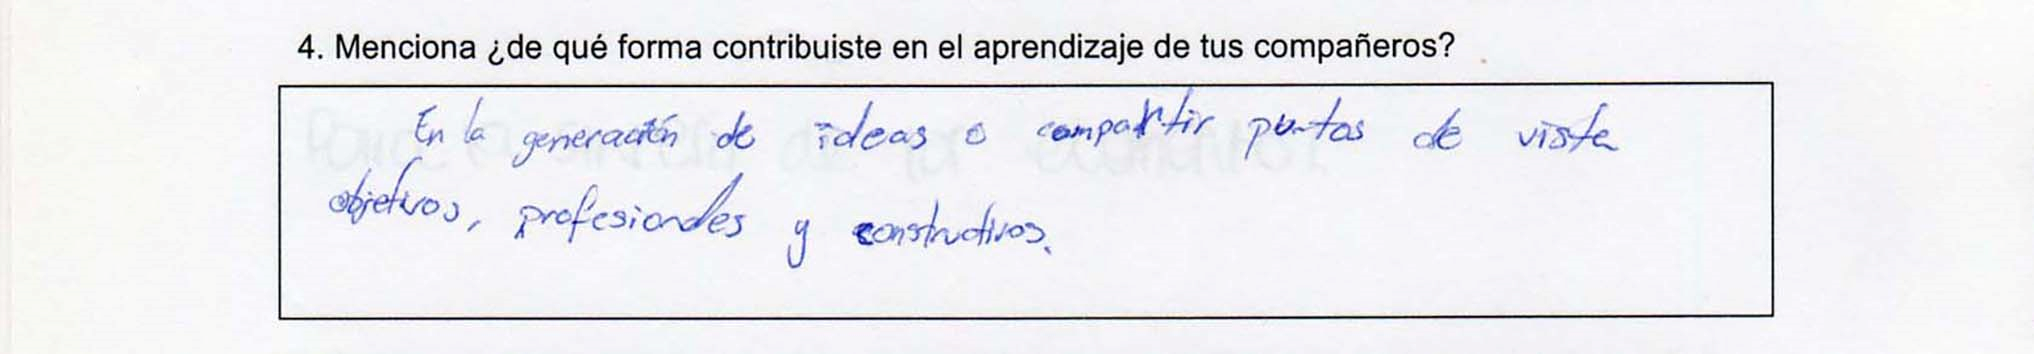 4. Menciona ¿de qué forma contribuiste en el aprendizaje de tus compañeros?
En la generación de ideas o compartir puntos de vista
objetivos, profesionales y constructivos.